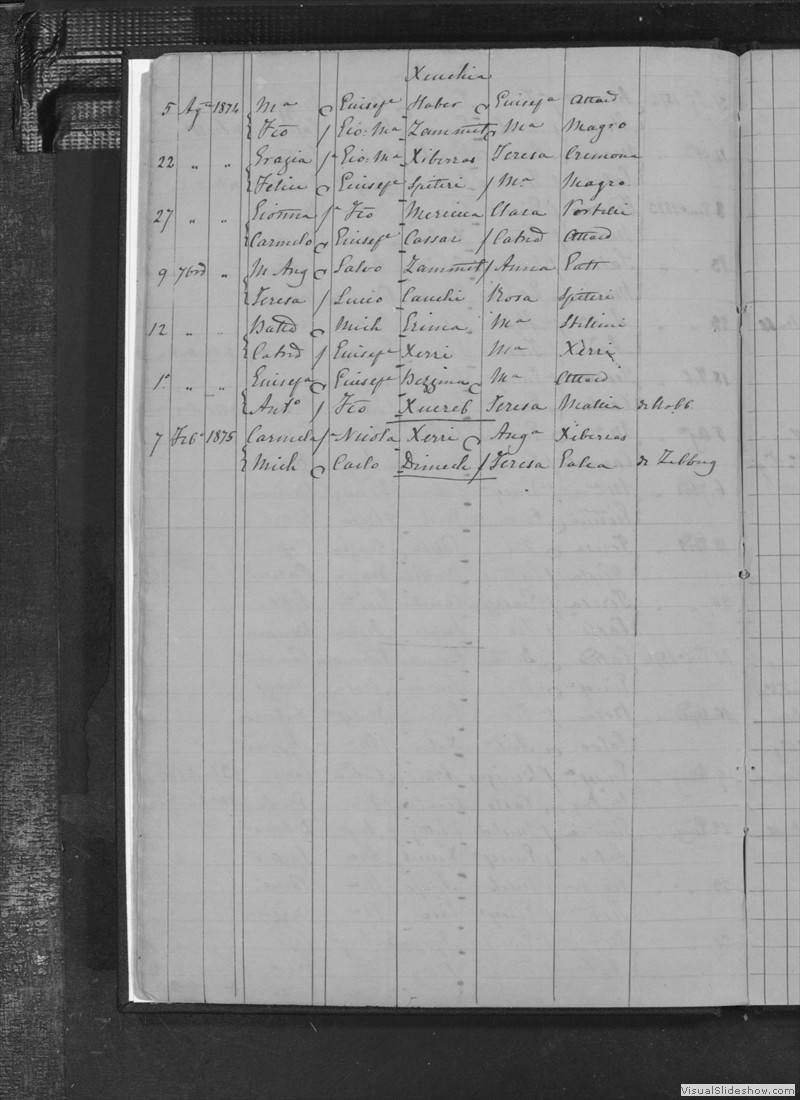 Xeuchia
5 Ag.º 1874 Mª Giusepe Haber Giusepa Attard
Fco Gio: Mª Zammit Mª Magro
22 " " Grazia Gio: Mª Xiberras Teresa Cremona
Felice Giusepe Spiteri Mª Magro
27 " " Gionna Fco Clara Portelli
Carmelo Giusepe Cassar Catnd Attard
9 7bre " M Ang Salvo Zammit Anna Galt
Teresa Lucio Cauchi Rosa Spiteri
12 " " Batta Mich Grima Mª
Catnd Giusepe Xerri Mª Xerri
1º " " Giusepa Giusepe Bezzina Mª Attard
Antº Fco Xuereb Teresa Mallia
7 Febº 1875 Carmela Nicola Xerri Angª Xiberras
Mich Carlo Dimech Teresa Galea de Zebbug
VisualSlideshow.com